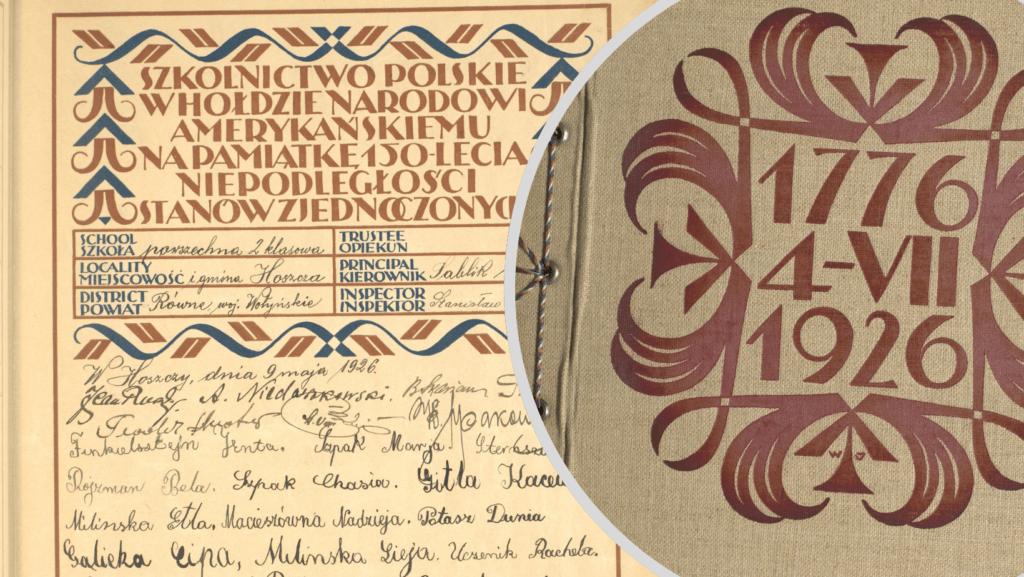 SZKOLNICTWO POLSKIE
W HOŁDZIE NARODOWI
AMERYKAŃSKIEMU
NA PAMIĄTKĘ 150-LECIA
NIEPODLEGŁOŚCI
STANÓW ZJEDNOCZONYC
SCHOOL
SZKOŁA powszechna 2 klasowa
TRUSTEE
OPIEKUN
LOCALITY
MIEJSCOWOŚĆ i gmina Hoszcza
PRINCIPAL
KIEROWNIK Sablik
DISTRICT
POWIAT Równe, woj. Wołyńskie
INSPECTOR
INSPEKTOR Stanisław
W Hoszczy, dnia 9 maja 1926.
A. Niedaszkowski.
Finkielsztejn Jenta. Szpak Marja.
Rojzman Bela. Szpak Chasia. Gitla
Milinska Etla, Macieszówna Nadzieja. Potasz Dunia
Galicka Cipa, Milinska Zieja. Uczenik Rachela.
1776
4-VII
1926